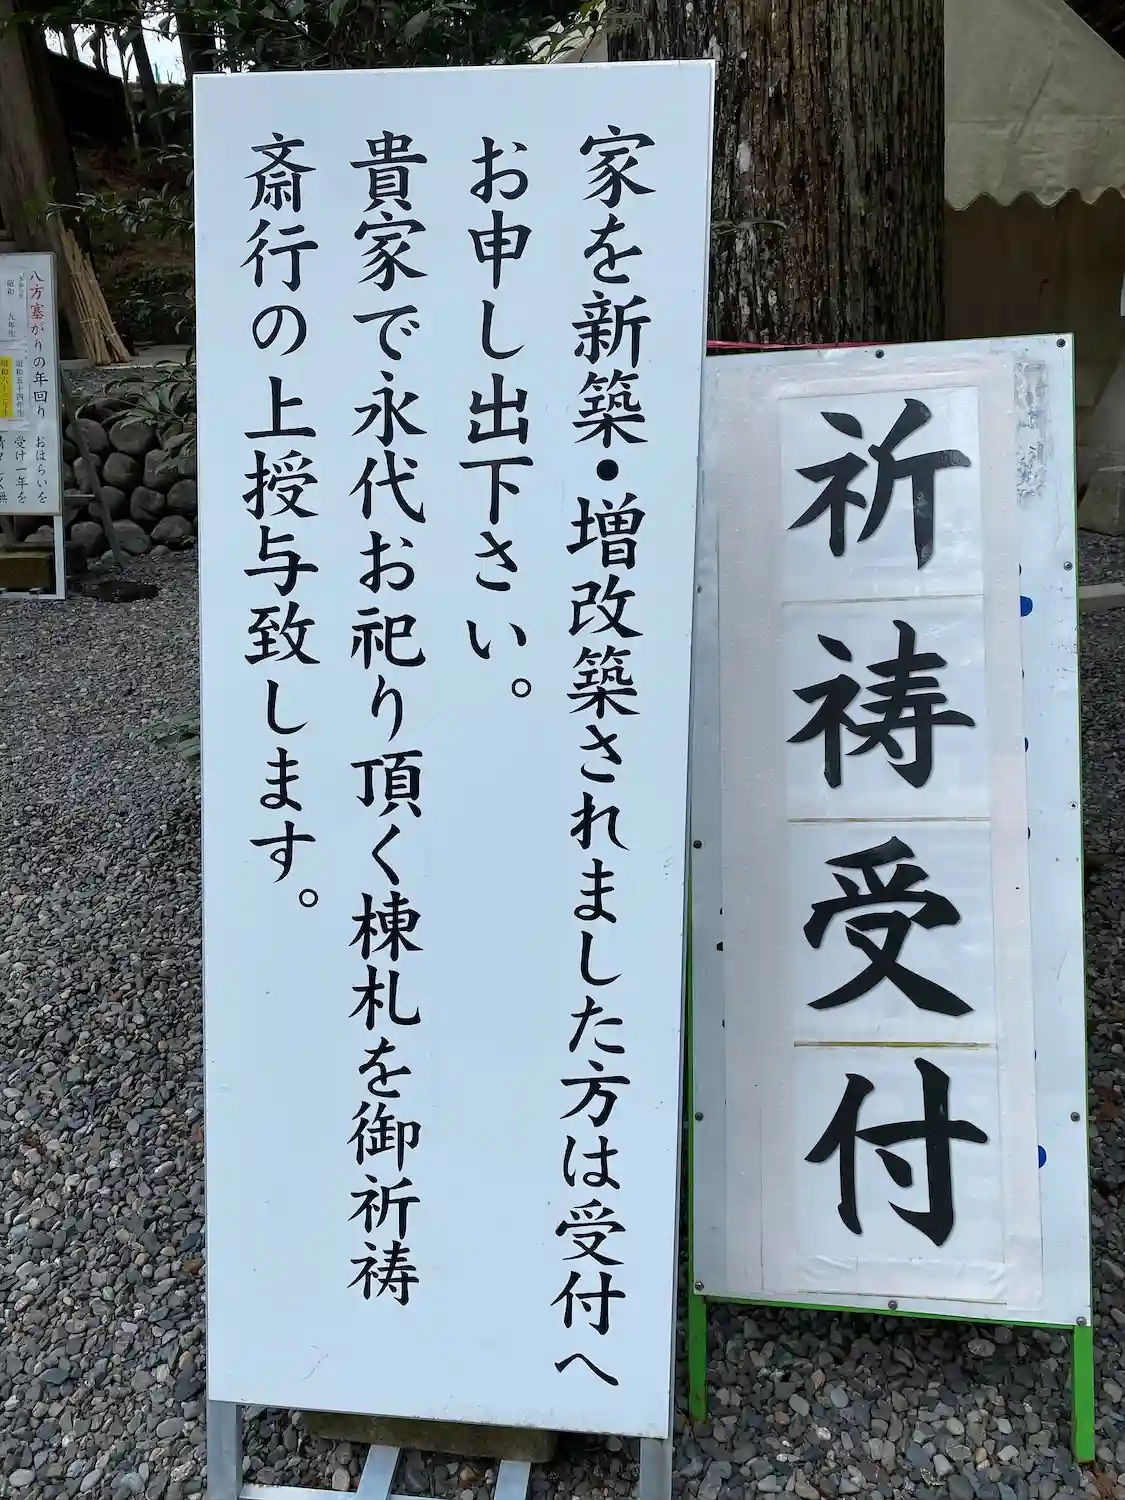 家を新築・増改築されました方は受付へ
お申し出下さい。
貴家で永代お祀り頂く棟札を御祈祷
斎行の上授与致します。
祈祷受付
八方塞がりの年回り
昭和 九年生
昭和五十四年生
おはらいを
受け一年を